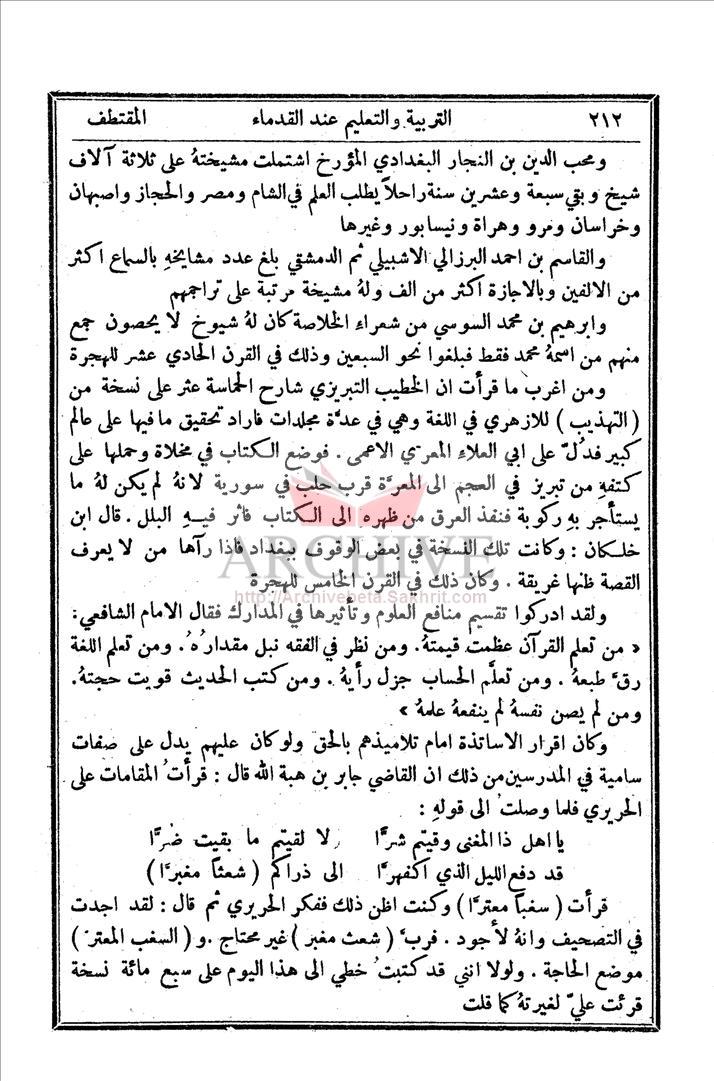 ٢١٢ التربية والتعليم عند القدماء المقتطف
ومحب الدين بن النجار البغدادي المؤرخ اشتملت مشيختهُ على ثلاثة آلاف
شيخ وبقي سبعة وعشرين سنة راحلاً يطلب العلم في الشام ومصر والحجاز واصبهان
وخراسان ومرو وهراة ونيسابور وغيرها
والقاسم بن احمد البرزالي الاشبيلي ثم الدمشقي بلغ عدد مشايخهِ بالسماع اكثر
من الالفين وبالاجازة اكثر من الف ولهُ مشيخة مرتبة على تراجمهم
وابرهيم بن محمد السوسي من شعراء الخلاصة كان لهُ شيوخ لا يحصون جمع
منهم من اسمهُ محمد فقط فبلغوا نحو السبعين وذلك في القرن الحادي عشر للهجرة
ومن اغرب ما قرأت ان الخطيب التبريزي شارح الحماسة عثر على نسخة من
( التهذيب ) للازهري في اللغة وهي في عدَّة مجلدات فاراد تحقيق ما فيها على عالم
كبير فدُلَّ على ابي العلاء المعري الاعمى . فوضع الكتاب في مخلاة وحملها على
كتفهِ من تبريز في العجم الى المعرَّة قرب حلب في سورية لانهُ لم يكن لهُ ما
يستأجر بهِ ركوبة فنفذ العرق من ظهره الى الكتاب فاثر فيهِ البلل . قال ابن
خلكان : وكانت تلك النسخة في بعض الوقوف ببغداد فاذا رآها من لا يعرف
القصة ظنها غريقة . وكان ذلك في القرن الخامس للهجرة
ARCHIVE
http://Archivebeta.Sakhrit.com
ولقد ادركوا تقسيم منافع العلوم وتأثيرها في المدارك فقال الامام الشافعي :
« من تعلم القرآن عظمت قيمتهُ . ومن نظر في الفقه نبل مقدارُهُ . ومن تعلم اللغة
رقَّ طبعهُ . ومن تعلَّم الحساب جزل رأيهُ . ومن كتب الحديث قويت حجتهُ .
ومن لم يصن نفسهُ لم ينفعهُ علمهُ »
وكان اقرار الاساتذة امام تلاميذهم بالحق ولو كان عليهم يدل على صفات
سامية في المدرسين من ذلك ان القاضي جابر بن هبة الله قال : قرأتُ المقامات على
الحريري فلما وصلتُ الى قولهِ :
يا اهل ذا المغنى وقيتم شرَّا لا لقيتم ما بقيت ضُرَّا
قد دفع الليل الذي اكفهرَّا الى ذراكم ( شعثاً مغبرَّا )
قرأت ( سغباً معترَّا ) وكنت اظن ذلك ففكر الحريري ثم قال : لقد اجدت
في التصحيف وانهُ لأجود . فربَّ ( شعث مغبر ) غير محتاج . و ( السغب المعترّ )
موضع الحاجة . ولولا انني قد كتبتُ خطي الى هذا اليوم على سبع مائة نسخة
قرئت عليَّ لغيرتهُ كما قلت